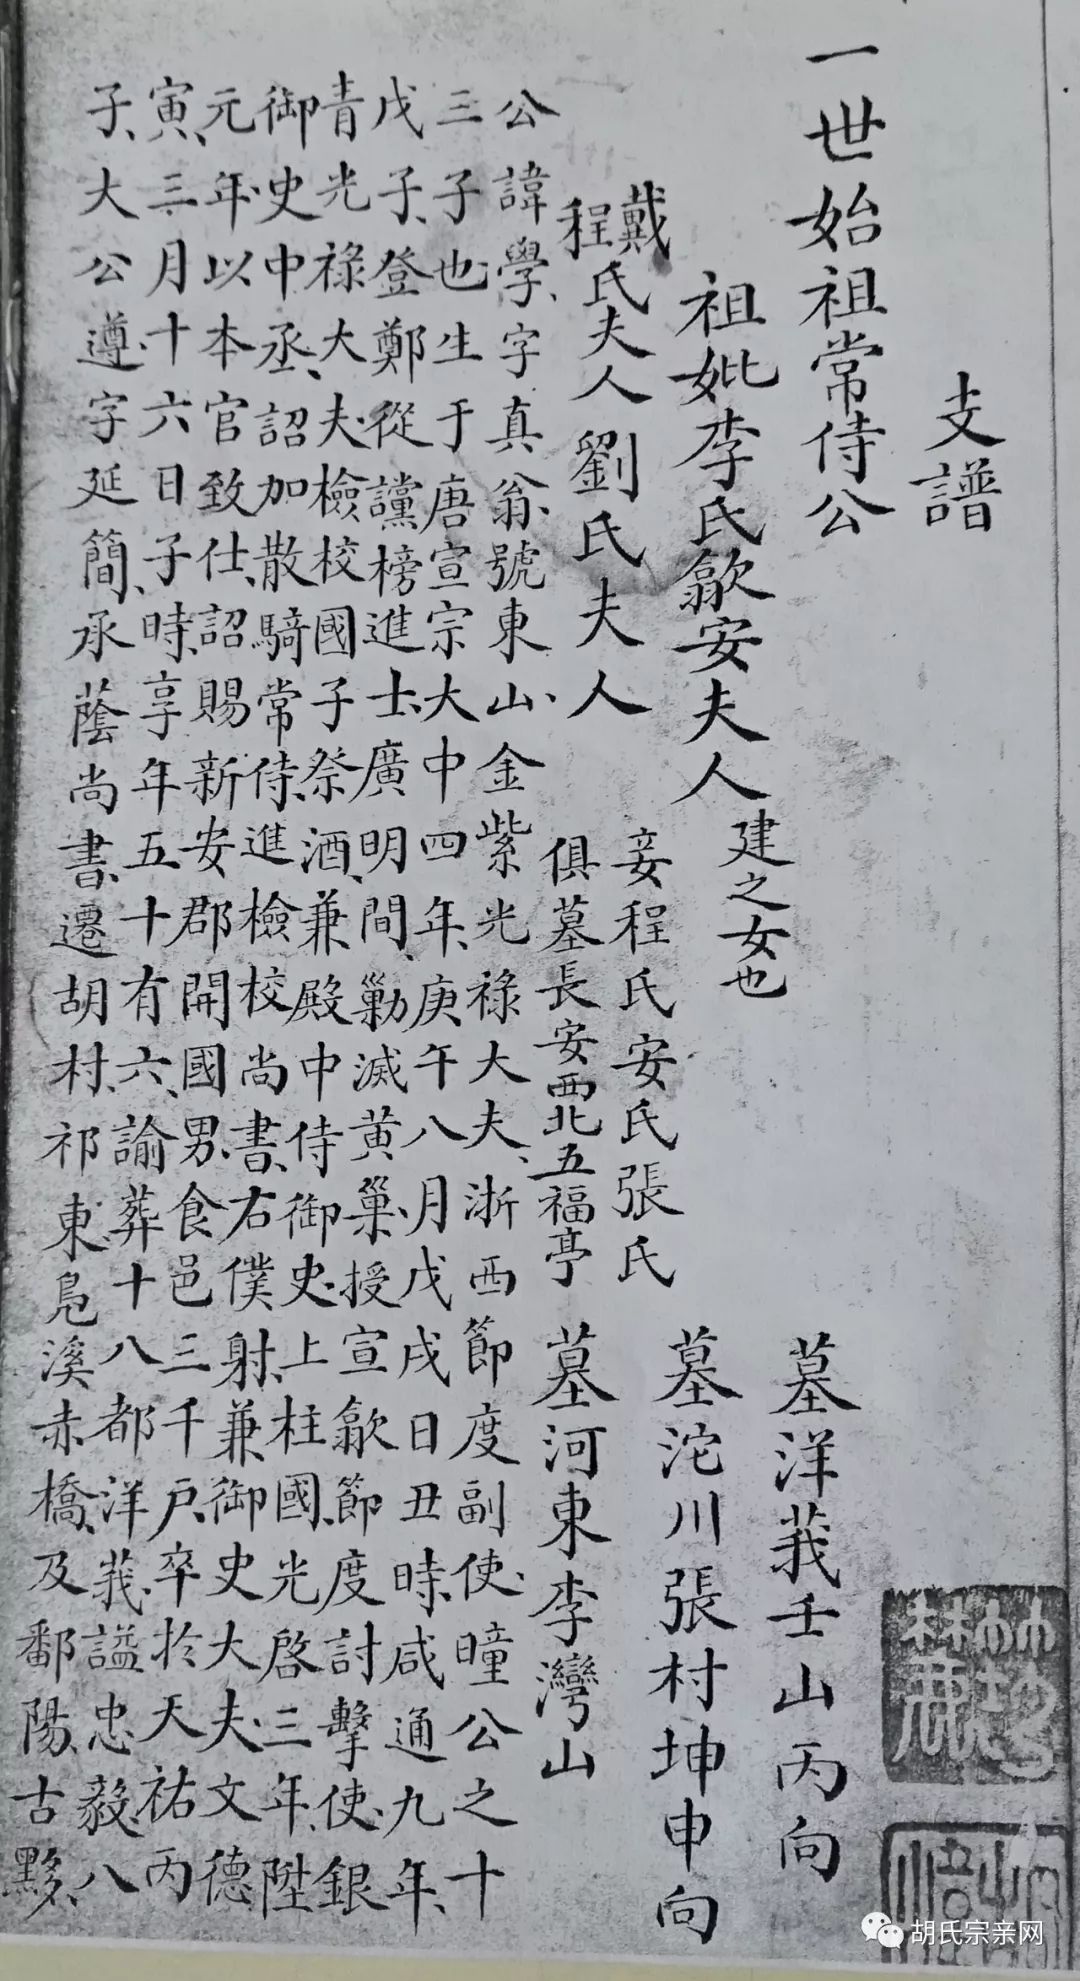 支譜
一世始祖常侍公
墓洋莪壬山丙向
祖妣李氏歙安夫人
建之女也
墓沱川張村坤申向
戴
程
氏夫人劉氏夫人
妾程氏安氏張氏
俱墓長安西北五福亭
墓河東李灣山
公諱學、字真翁、號東山、金紫光祿大夫、浙西節度副使、瞳公之十
三子也、生于唐宣宗大中四年、庚午八月戊戌日丑時、咸通九年、
戊子、登鄭從讜榜進士、廣明間、勦滅黄巢、授宣歙節度討擊使、銀
青光祿大夫、檢校國子祭酒、兼殿中侍御史、上柱國、光啓三年、陞
御史中丞、詔加散騎常侍、進檢校尚書、右僕射、兼御史大夫、文德
元年、以本官致仕、詔賜新安郡開國男、食邑三千戶、卒於天祐丙
寅、三月十六日、子時、享年五十有六、諭葬十八都洋莪、謚忠毅、八
子、大公遵、字延簡、承蔭尚書、遷胡村、祁東鳧溪赤橋、及鄱陽、古黟、
胡氏宗亲网